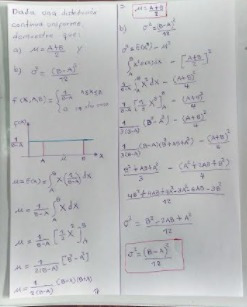 Dada una distribución
continua uniforme,
demuestre que:
a) μ = A+B/2 y
b) σ² = (B-A)²/12
f(x,A,B) = { 1/B-A A≤x≤B
0
1/B-A
A μ B x
μ = E(x) = ∫_A^B x(1/B-A) dx
μ = 1/B-A ∫_A^B x dx
μ = 1/B-A [1/2 x²]_A^B
μ = 1/2(B-A) [B²-A²]
μ = 1/2(B-A) (B-A)(B+A)
μ = A+B/2
b) σ² = (B-A)²/12
σ² = E(x²) - μ²
- [A+B/2]²
1/B-A ∫_A^B x² dx - (A+B)²/4
1/B-A [1/3 x³]_A^B - (A+B)²/4
1/3(B-A) (B³-A³) - (A+B)²/4
1/3(B-A) (B-A)(B²+AB+A²) - (A+B)²/4
B²+AB+A²/3 - (A²+2AB+B²)/4
4B²+4AB+4A²-3A²-6AB-3B²/12
σ² = B²-2AB+A²/12
σ² = (B-A)²/12